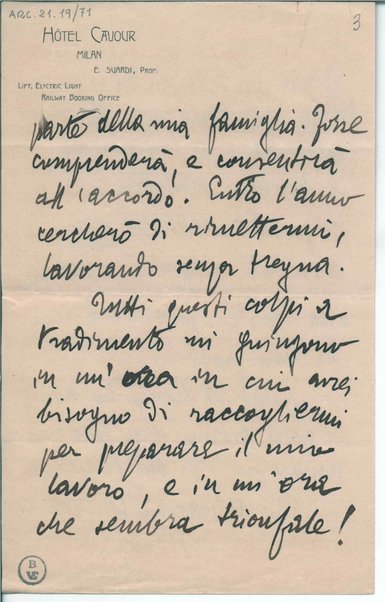 ARC. 21. 19/71
3
HÔTEL CAVOUR
MILAN
E. SUARDI, PROP.
LIFT, ELECTRIC LIGHT
RAILWAY BOOKING OFFICE
parte della mia famiglia. Forse
comprenderà, e consentirà
all'accordo. Entro l'anno
cercherò di rimettermi,
lavorando senza tregua.
Tutti questi colpi a
tradimento mi giungono
in un'ora in cui avrei
bisogno di raccogliermi
per preparare il mio
lavoro, e in un'ora
che sembra trionfale!